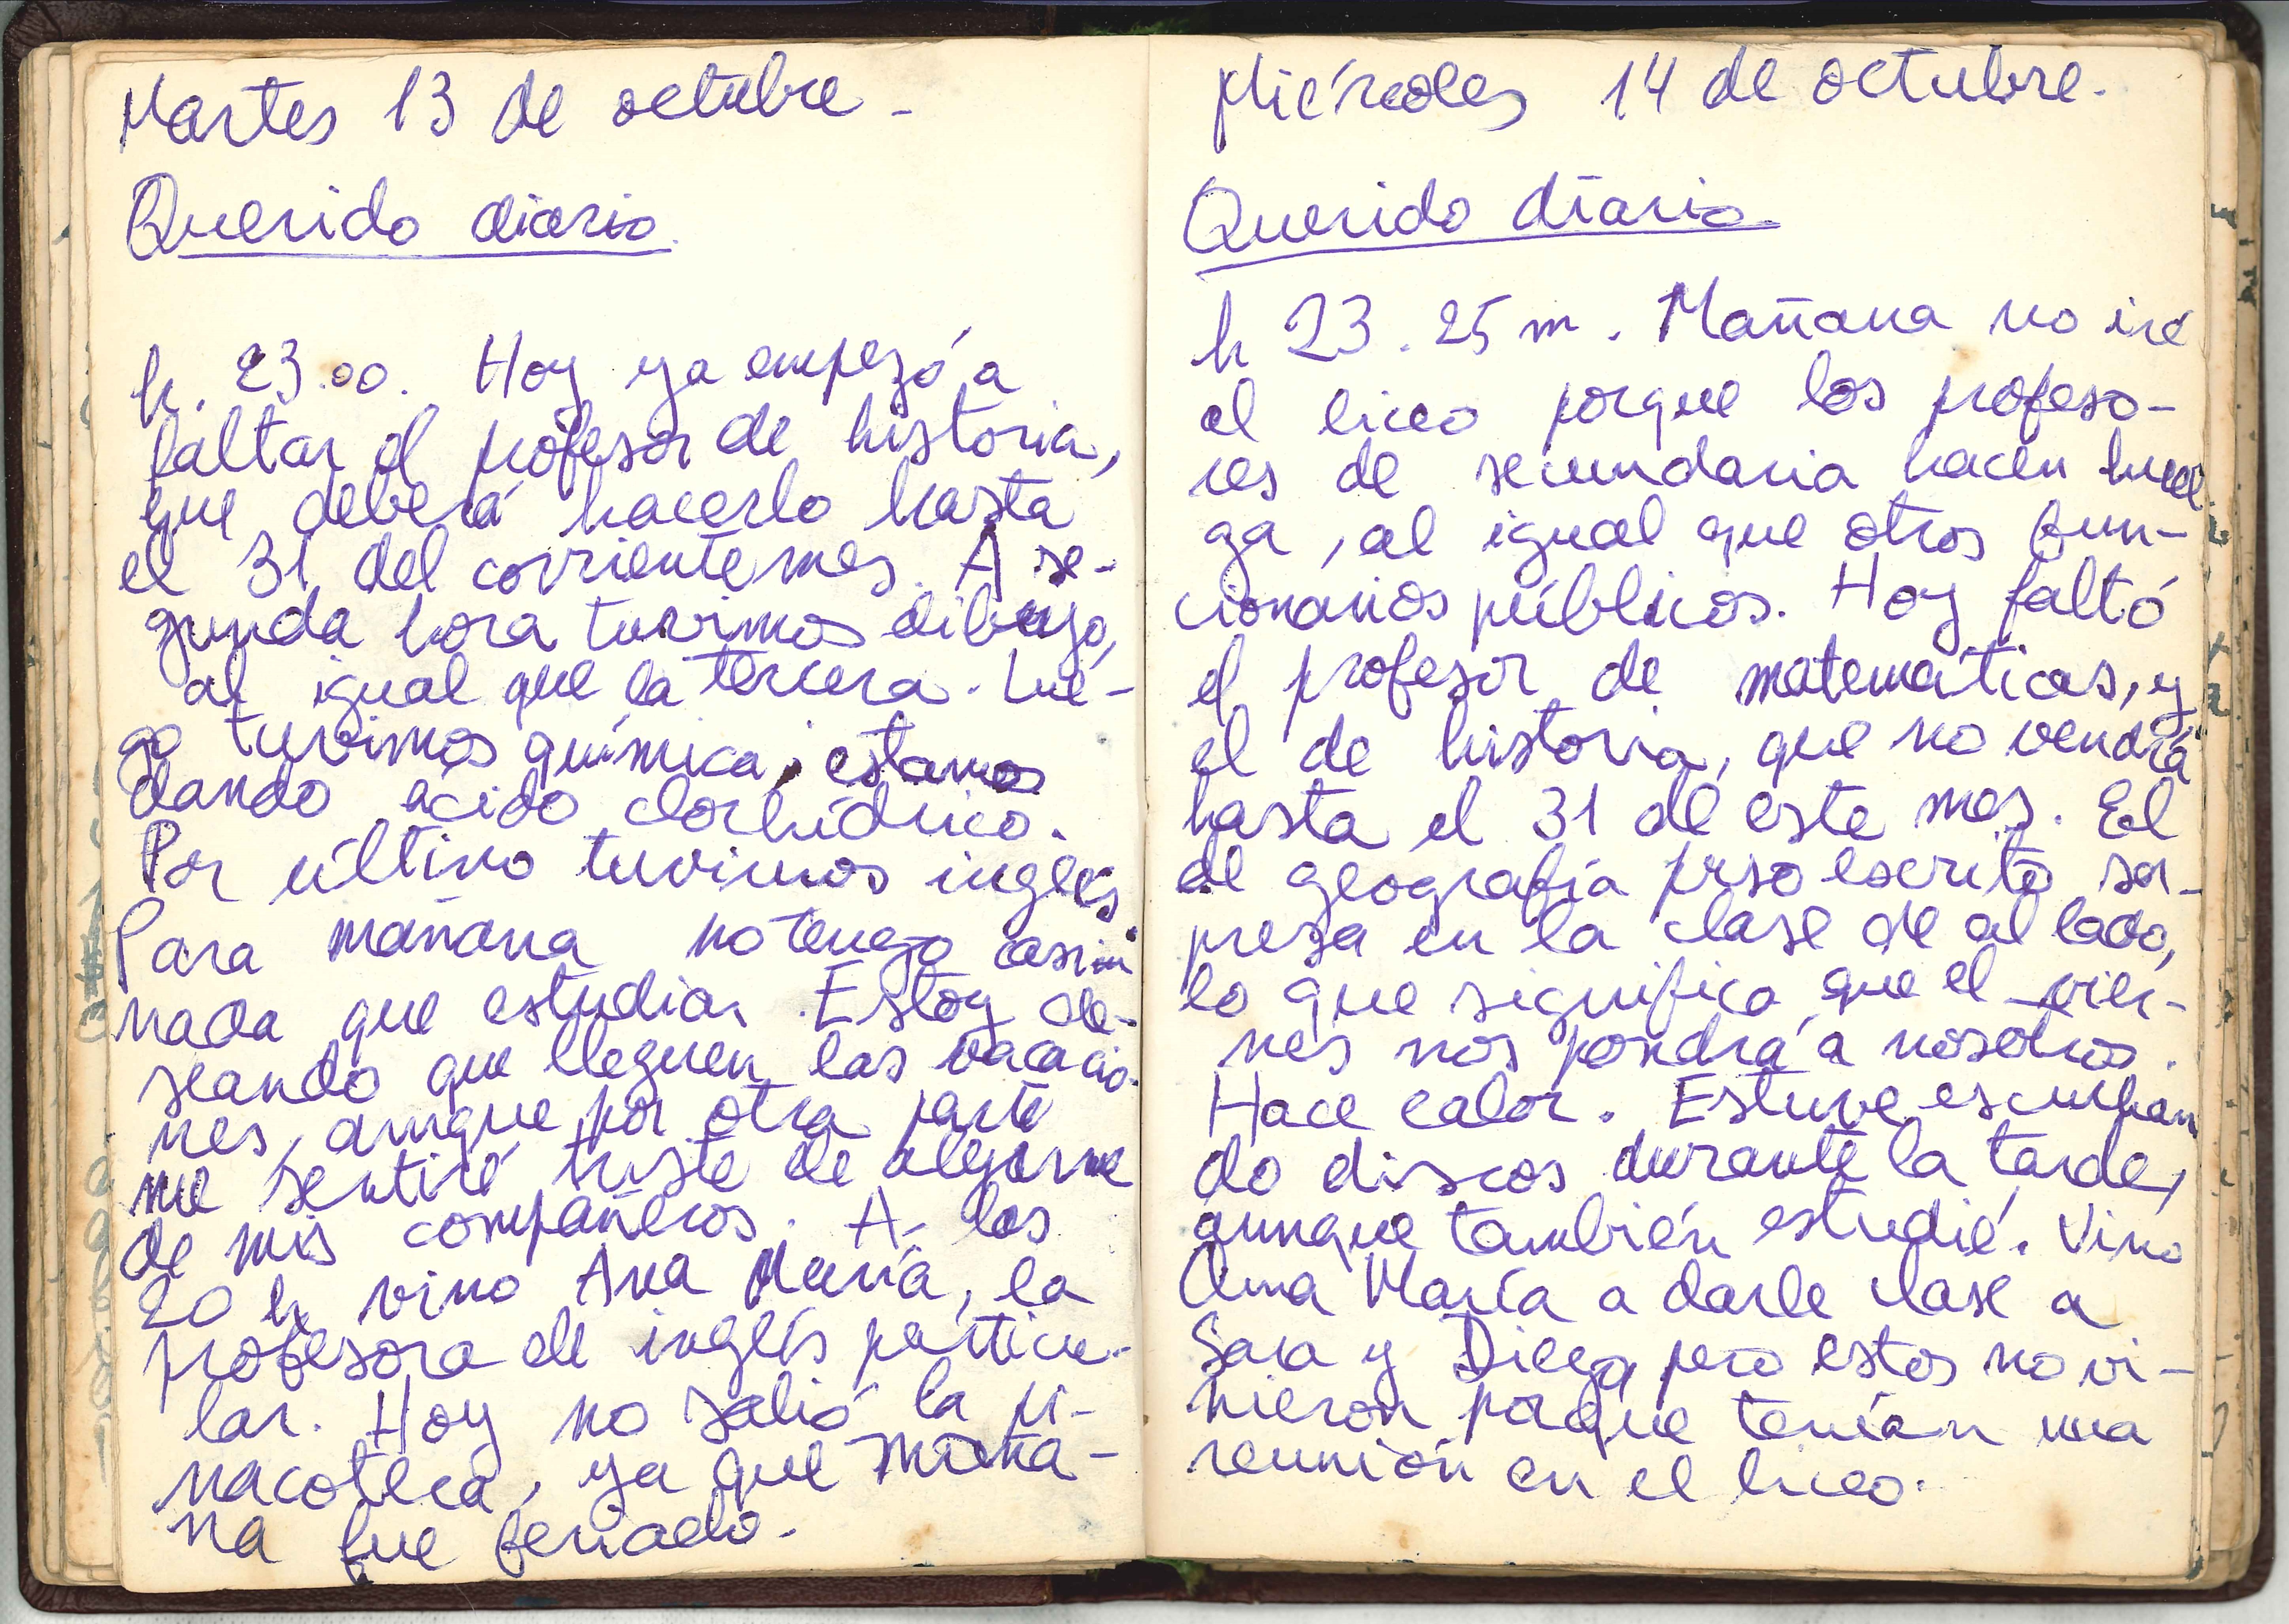 Martes 13 de octubre -
Querido diario.
h. 23.00. Hoy ya empezó a
faltar el profesor de historia,
que deberá hacerlo hasta
el 31 del corriente mes. A se-
gunda hora tuvimos dibujo,
al igual que la tercera. Lue-
go tuvimos química, estamos
dando ácido clorhídrico.
Por último tuvimos inglés
Para mañana no tengo casi
nada que estudiar. Estoy de-
seando que lleguen las vacacio-
nes, aunque por otra parte
me sentiré triste de alejarme
de mis compañeros. A las
20 h vino Ana María, la
profesora de inglés particu-
lar. Hoy no salió la pi-
nacoteca, ya que maña-
na fue feriado.
Miércoles 14 de octubre.
Querido diario
h 23.25 m. Mañana no iré
al liceo porque los profeso-
res de secundaria hacen huel
ga, al igual que otros fun-
cionarios públicos. Hoy faltó
el profesor de matemáticas, y
el de historia, que no vendrá
hasta el 31 de este mes. El
de geografía puso escrito sor-
presa en la clase de al lado,
lo que significa que el vier-
nes nos pondrá a nosotros.
Hace calor. Estuve escuchan
do discos durante la tarde,
aunque también estudié. Vino
Ana María a darle clase a
Sara y Diego pero estos no vi-
nieron porque tenían una
reunión en el liceo.